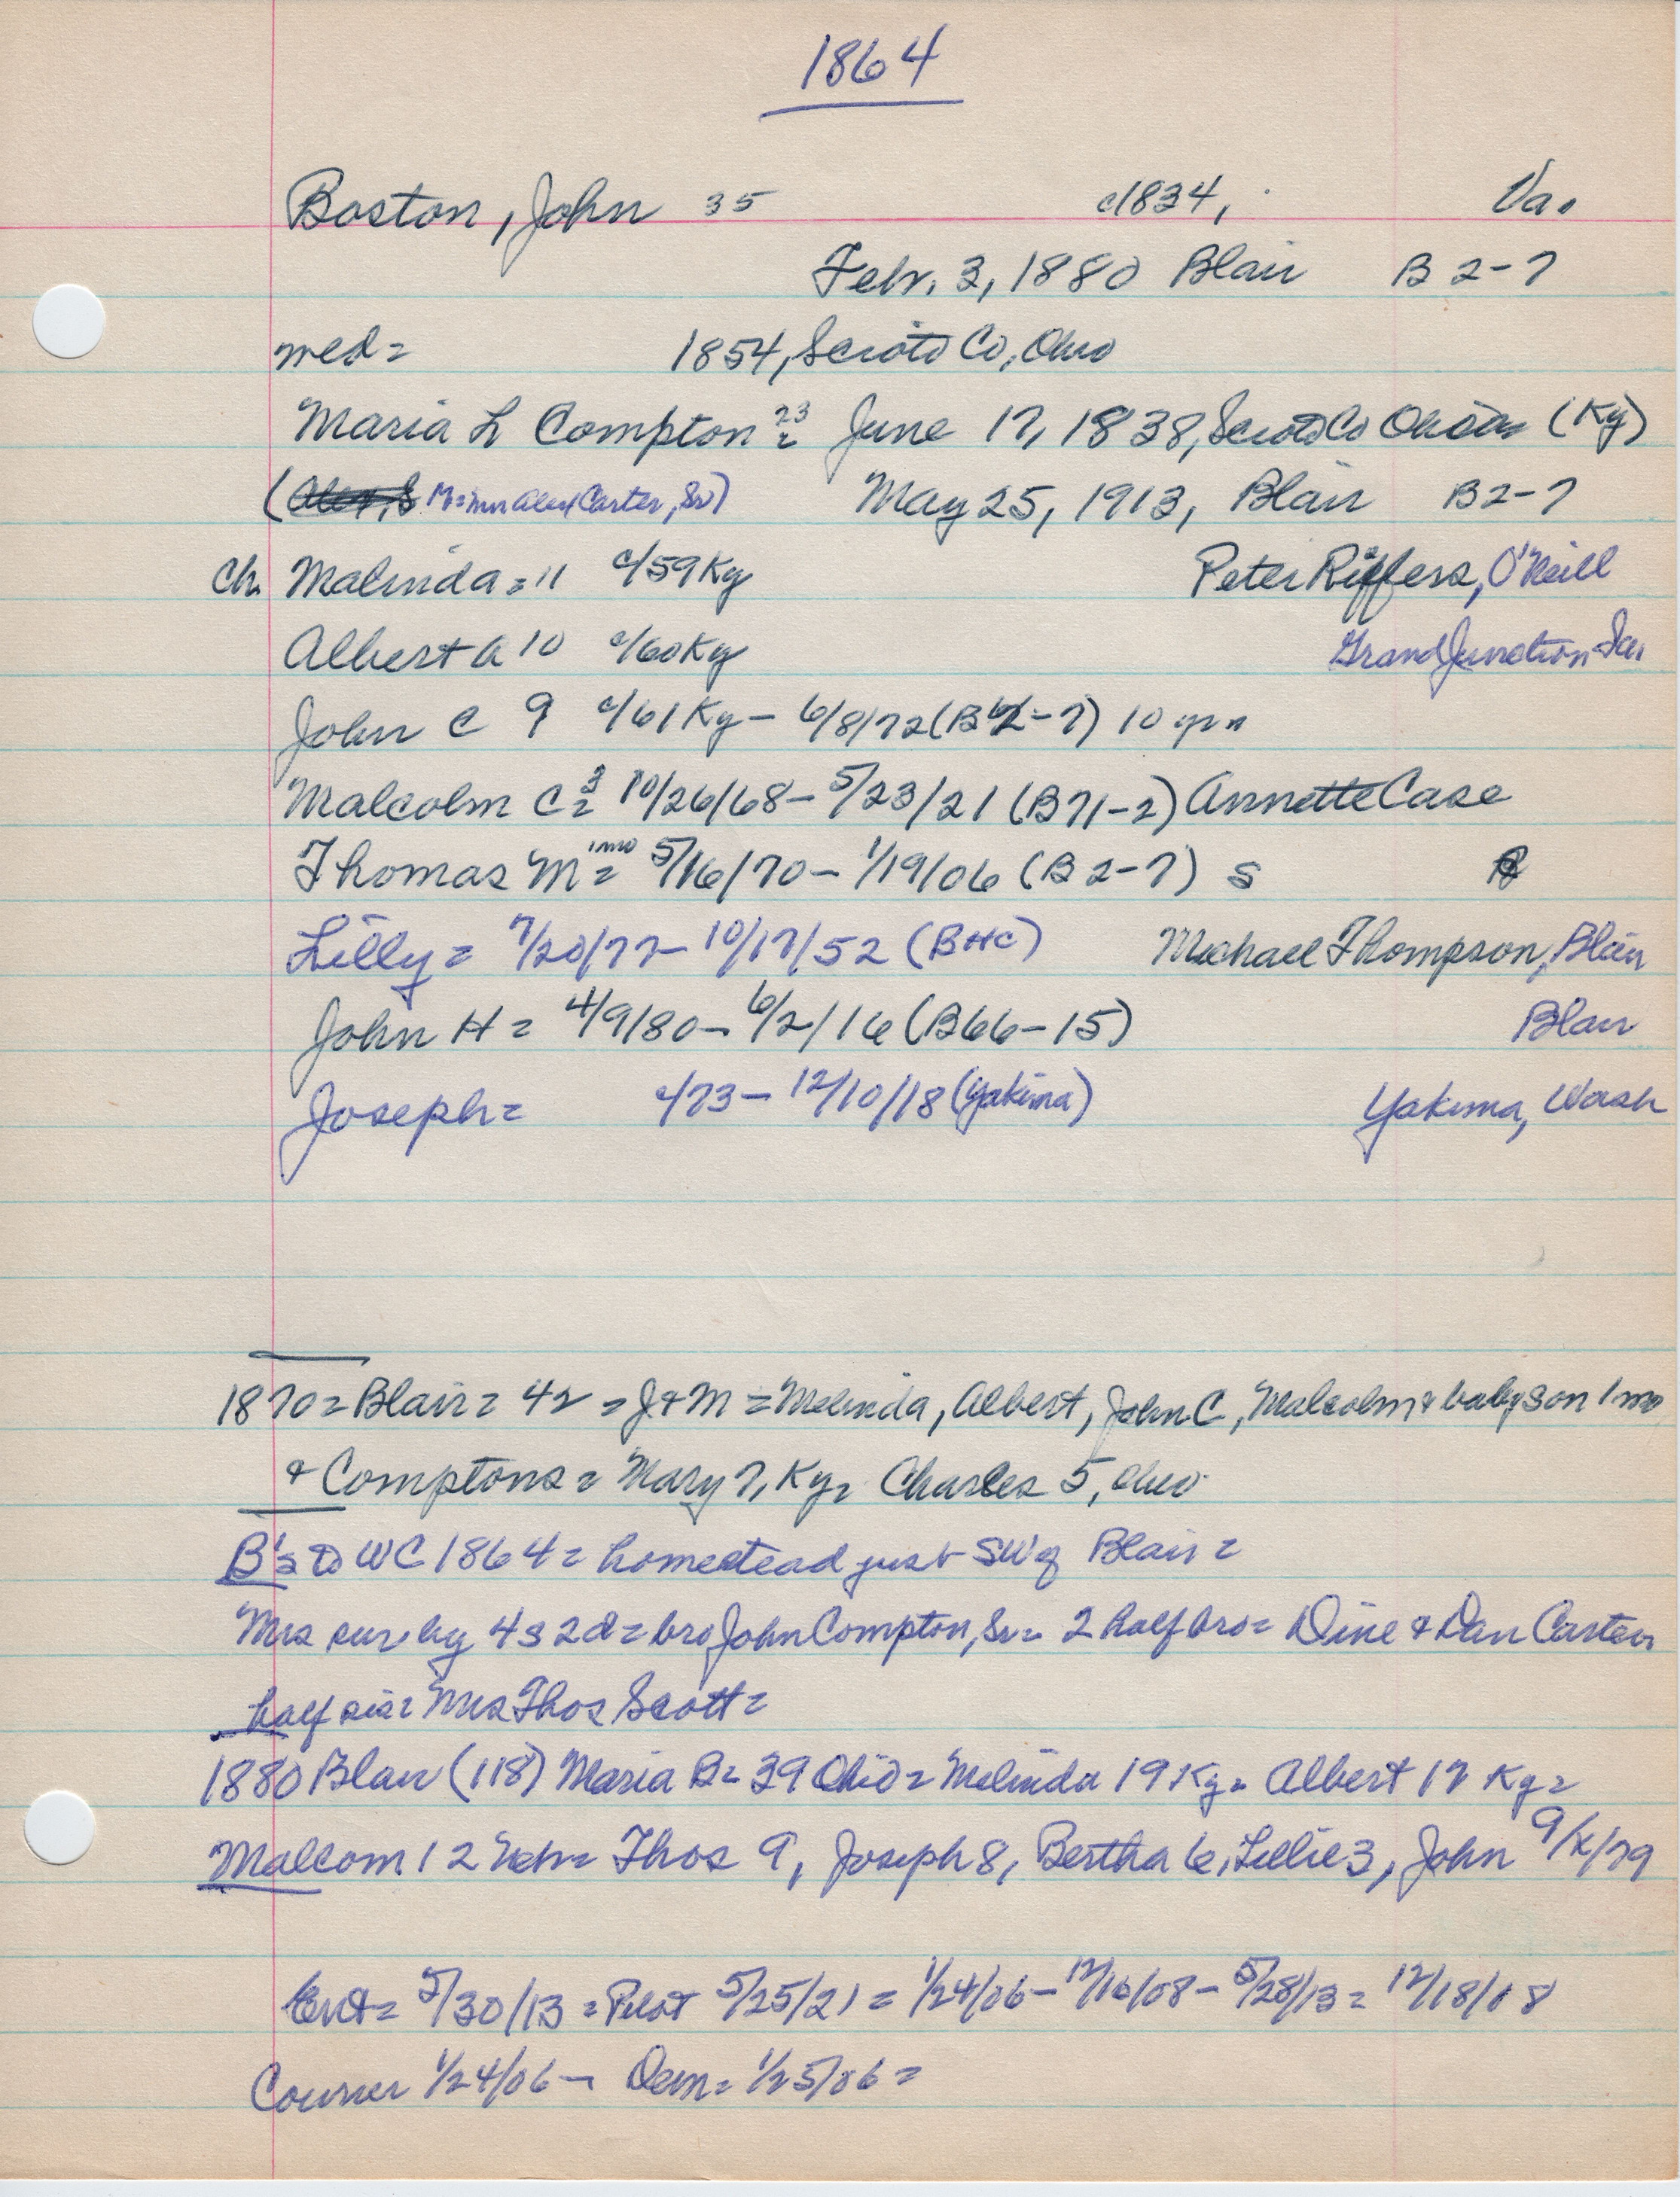 1864
Boston, John 35 c/1834, Va.
Febr. 3, 1880 Blair B 2-7
med= 1854, Scioto Co, Ohio
Maria L Compton 23 = June 17, 1838, Scioto Co Ohio (Ky)
( M= Mrs Alex Carter, Sr) May 25, 1913, Blair B2-7
Ch. Malinda = 11 c/59 Ky Peter Riffers, O'Neill
Albert A 10 c/60 Ky Grand Junction Ia.
John C 9 c/61 Ky - 6/8/72 (B 2-7) 10 yrs
Malcolm C 3 = 10/26/68 - 5/23/21 (B71-2) Annette Case
Thomas M 1mo = 5/16/70 - 1/19/06 (B 2-7) S
Lilly = 7/20/77 - 10/17/52 (BHC) Michael Thompson, Blair
John H = 4/9/80 - 6/2/16 (B66-15) Blair
Joseph = c/73 - 12/10/18 (Yakima) Yakima, Wash
1870 = Blair = 42 = J & M = Melinda, Albert, John C, Malcolm & baby son 1 mo
& Comptons = Mary 7, Ky, Charles 5, Ohio
B's to WC 1864 = homestead just SW of Blair =
Mrs sur by 4s 2d = bro John Compton, Sr = 2 half bro = Dine & Dan Carter
half sis = Mrs Thos Scott =
1880 Blair (118) Maria B = 39 Ohio = Melinda 19 Ky = Albert 17 Ky =
Malcom 12 Neb = Thos 9, Joseph 8, Bertha 6, Lillie 3, John 9/x/79
Ent = 5/30/13 = Pilot 5/25/21 = 1/24/06 - 12/16/08 - 5/28/13 = 12/18/18
Courier 1/24/06 - Dem = 1/25/06 =